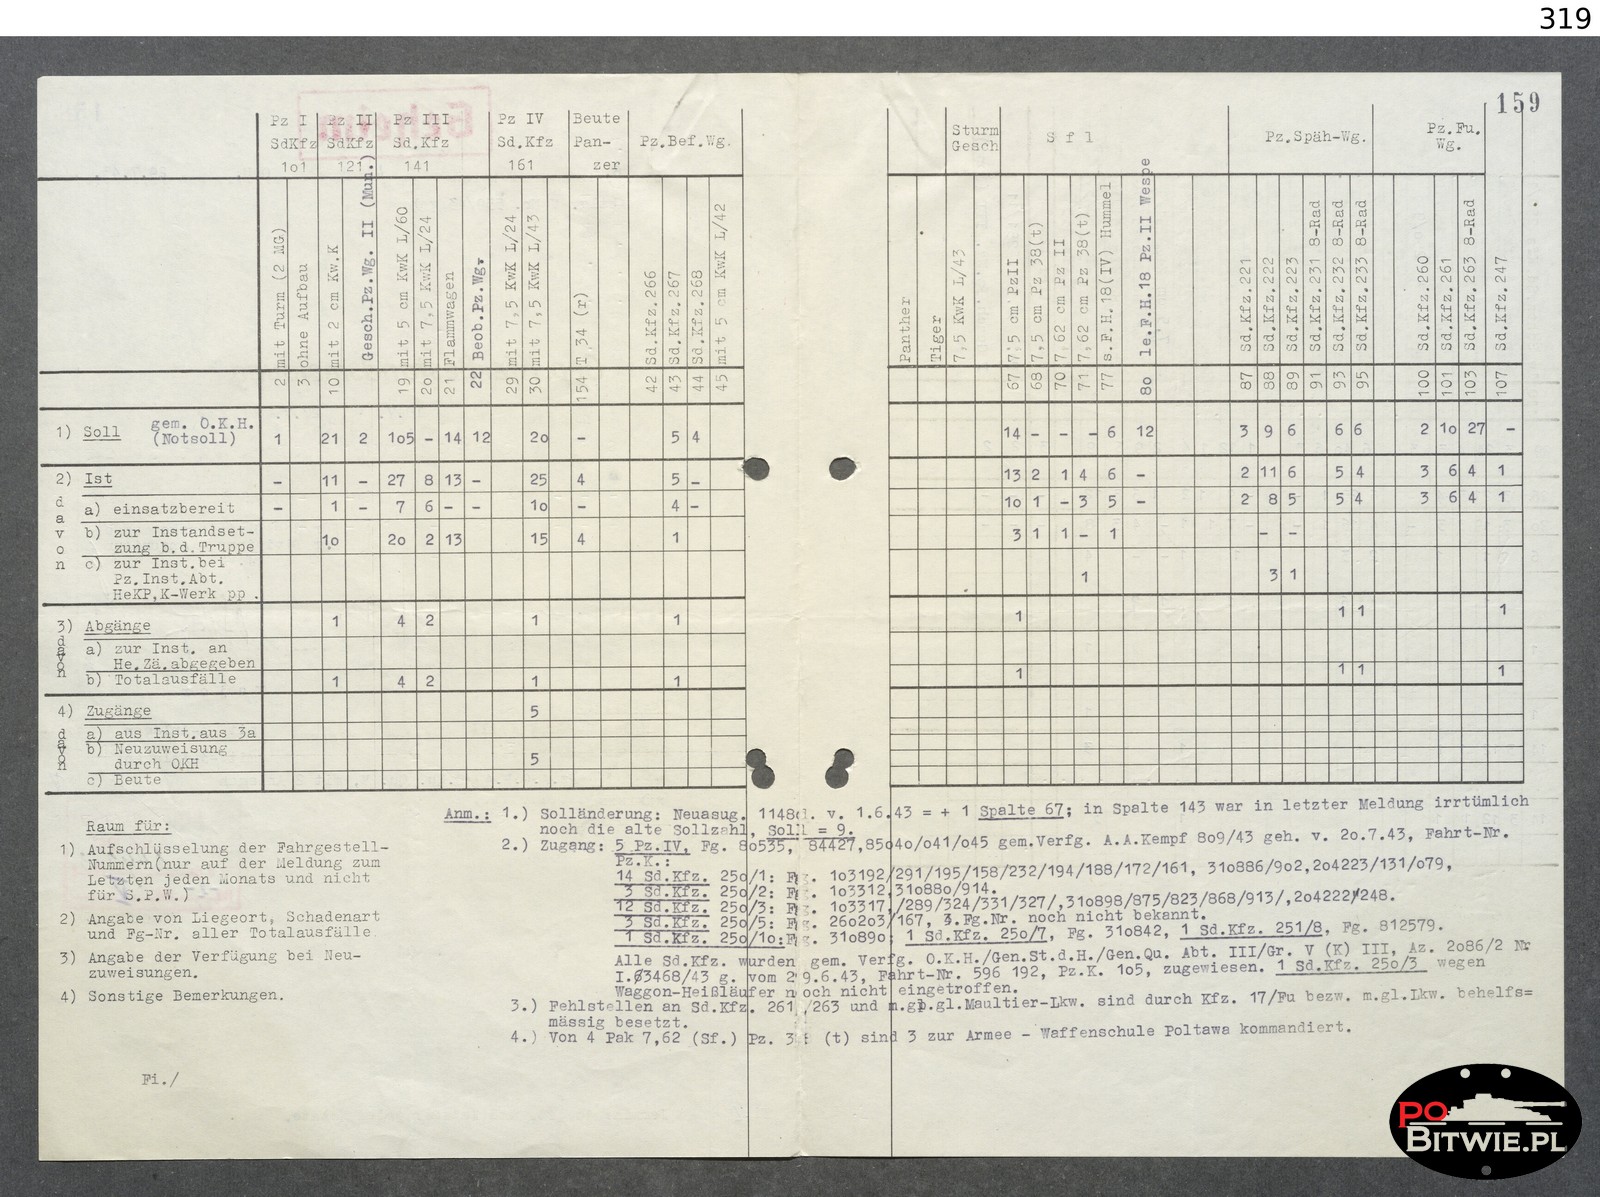 319
159
Pz I Pz II Pz III Pz IV Beute Pz.Bef.Wg. Sturm Gesch S f l Pz.Späh-Wg. Pz.Fu. Wg.
SdKfz SdKfz Sd.Kfz Sd.Kfz Pan-
1o1 121 141 161 zer
mit Turm (2 MG)
ohne Aufbau
mit 2 cm Kw.K
Gesch.Pz.Wg. II (Mun.)
mit 5 cm KwK L/60
mit 7,5 KwK L/24
Flammwagen
Beob.Pz.Wg.
mit 7,5 KwK L/24
mit 7,5 KwK L/43
T 34 (r)
Sd.Kfz.266
Sd.Kfz.267
Sd.Kfz.268
mit 5 cm KwK L/42
Panther
Tiger
7,5 KwK L/43
7,5 cm PzII
7,5 cm Pz 38(t)
7,62 cm Pz II
7,62 cm Pz 38(t)
s.F.H.18(IV) Hummel
le.F.H.18 Pz.II Wespe
Sd.Kfz.221
Sd.Kfz.222
Sd.Kfz.223
Sd.Kfz.231 8-Rad
Sd.Kfz.232 8-Rad
Sd.Kfz.233 8-Rad
Sd.Kfz.260
Sd.Kfz.261
Sd.Kfz.263 8-Rad
Sd.Kfz.247
2 3 10 19 20 21 22 29 30 154 42 43 44 45 67 68 70 71 77 80 87 88 89 91 93 95 100 101 103 107
1) Soll gem. O.K.H. (Notsoll) 1 21 2 1o5 - 14 12 2o - 5 4 14 - - - 6 12 3 9 6 6 6 2 1o 27 -
2) Ist - 11 - 27 8 13 - 25 4 5 - 13 2 1 4 6 - 2 11 6 5 4 3 6 4 1
davon
a) einsatzbereit - 1 - 7 6 - - 1o - 4 - 1o 1 - 3 5 - 2 8 5 5 4 3 6 4 1
b) zur Instandset-
zung b.d.Truppe 1o 2o 2 13 15 4 1 3 1 1 - 1 - -
c) zur Inst.bei
Pz.Inst.Abt. 1 3 1
HeKP,K-Werk pp.
3) Abgänge 1 4 2 1 1 1 1 1 1
davon
a) zur Inst. an
He.Zä.abgegeben
b) Totalausfälle 1 4 2 1 1 1 1 1 1
4) Zugänge 5
davon
a) aus Inst.aus 3a
b) Neuzuweisung
durch OKH 5
c) Beute
Raum für:
1) Aufschlüsselung der Fahrgestell-
Nummern(nur auf der Meldung zum
Letzten jeden Monats und nicht
für S.P.W.)
2) Angabe von Liegeort, Schadenart
und Fg-Nr. aller Totalausfälle.
3) Angabe der Verfügung bei Neu-
zuweisungen.
4) Sonstige Bemerkungen.
Fi./
Anm.: 1.) Solländerung: Neuasug. 1148d. v. 1.6.43 = + 1 Spalte 67; in Spalte 143 war in letzter Meldung irrtümlich
noch die alte Sollzahl, Soll = 9.
2.) Zugang: 5 Pz.IV, Fg. 80535, 84427,85o4o/o41/o45 gem.Verfg. A.A.Kempf 8o9/43 geh. v. 2o.7.43, Fahrt-Nr.
Pz.K.:
14 Sd.Kfz. 25o/1: Fg. 1o3192/291/195/158/232/194/188/172/161, 31o886/9o2,2o4223/131/o79,
3 Sd.Kfz. 25o/2: Fg. 1o3312,31o88o/914.
12 Sd.Kfz. 25o/3: Fg. 1o3317,/289/324/331/327/,31o898/875/823/868/913/,2o4222/248.
3 Sd.Kfz. 25o/5: Fg. 26o2o3/167, 3.Fg.Nr. noch nicht bekannt.
1 Sd.Kfz. 25o/1o:Fg. 31o89o; 1 Sd.Kfz. 25o/7, Fg. 31o842, 1 Sd.Kfz. 251/8, Fg. 812579.
Alle Sd.Kfz. wurden gem. Verfg. O.K.H./Gen.St.d.H./Gen.Qu. Abt. III/Gr. V (K) III, Az. 2o86/2 Nr
I.03468/43 g. vom 29.6.43, Fahrt-Nr. 596 192, Pz.K. 1o5, zugewiesen. 1 Sd.Kfz. 25o/3 wegen
Waggon-Heißläufer noch nicht eingetroffen.
3.) Fehlstellen an Sd.Kfz. 261/263 und m.gp.gl.Maultier-Lkw. sind durch Kfz. 17/Fu bezw. m.gl.Lkw. behelfs=
mässig besetzt.
4.) Von 4 Pak 7,62 (Sf.) Pz. 38 (t) sind 3 zur Armee - Waffenschule Poltawa kommandiert.
PO
BITWIE.PL